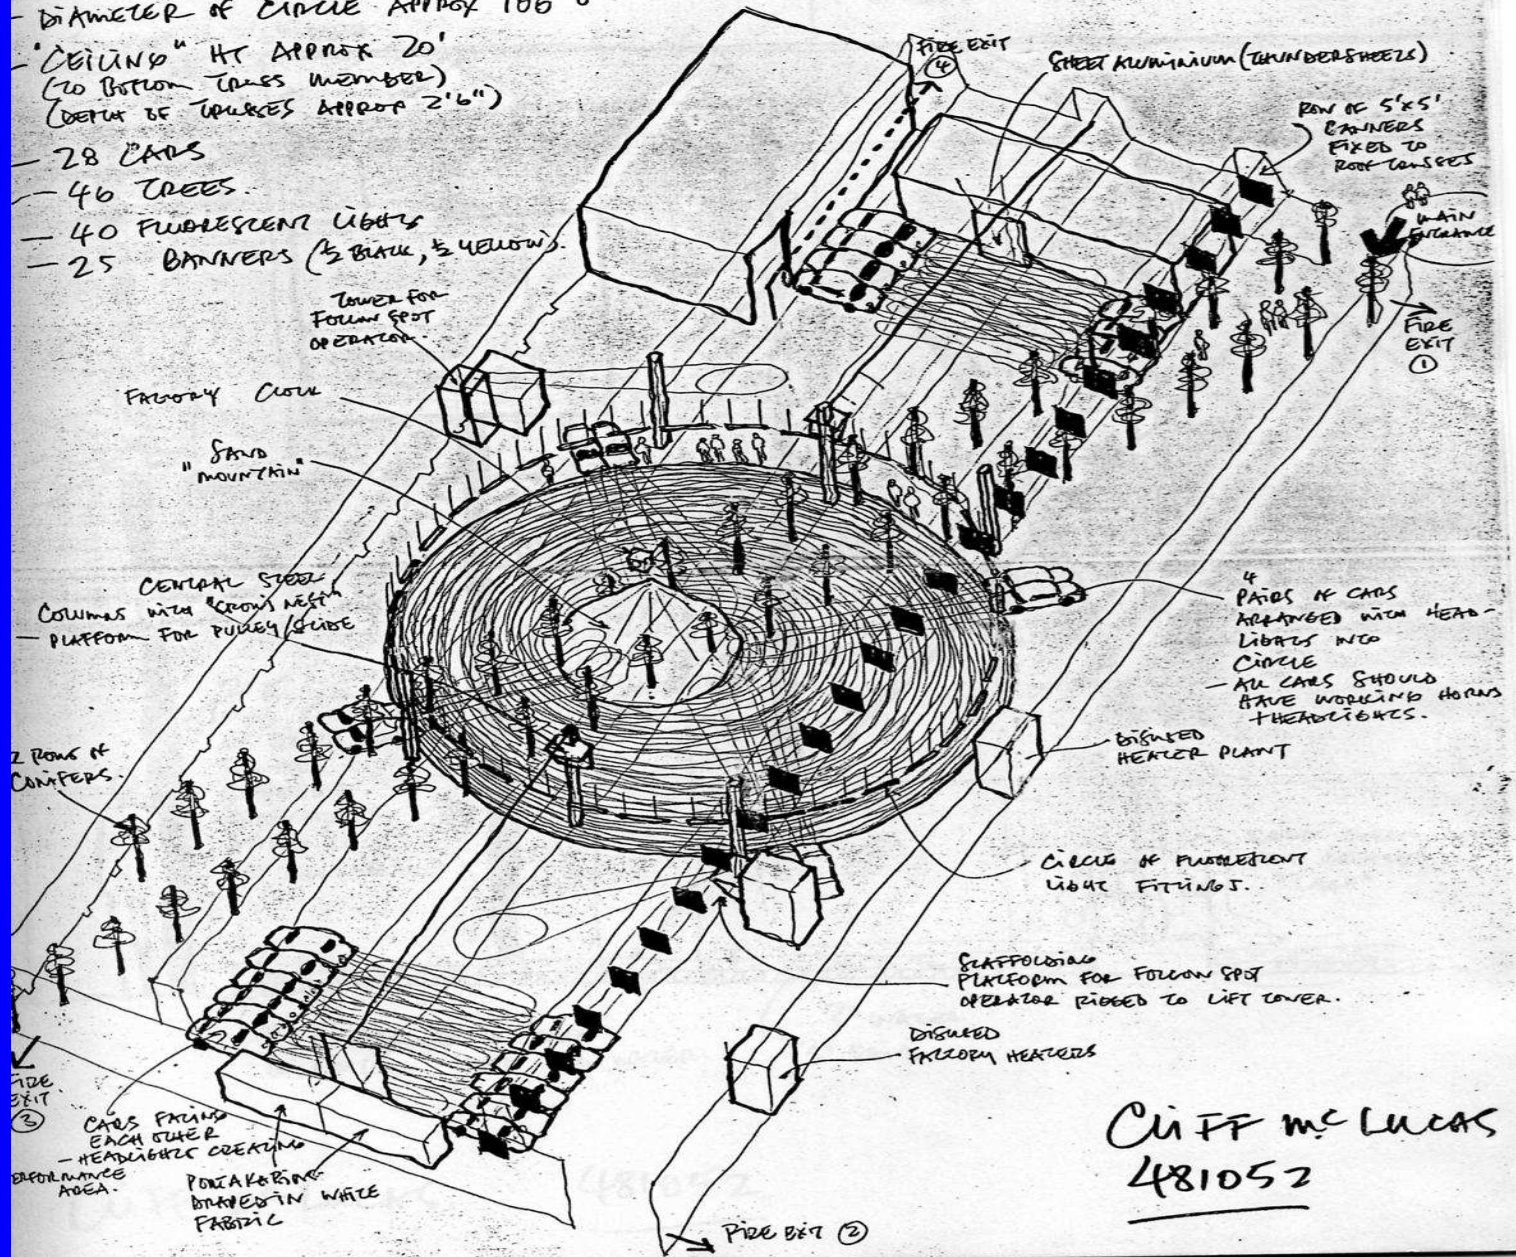 - DIAMETER OF CIRCLE APPROX 100'
- "CEILING" HT APPROX 20'
(TO BOTTOM TRUSS MEMBER)
(DEPTH OF TRUSSES APPROX 2'6")
- 28 CARS
- 46 TREES.
- 40 FLUORESCENT LIGHTS
- 25 BANNERS (½ BLACK, ½ YELLOW).
FIRE EXIT
④
SHEET ALUMINIUM (THUNDERSHEETS)
ROW OF 5'x5'
BANNERS
FIXED TO
ROOF TRUSSES
MAIN
ENTRANCE
FIRE
EXIT
①
TOWER FOR
FOLLOW SPOT
OPERATOR.
FACTORY CLOCK
SAND
"MOUNTAIN"
CENTRAL STEEL
COLUMNS WITH "CROW'S NEST"
- PLATFORM FOR PULLEY/SLIDE
4
PAIRS OF CARS
ARRANGED WITH HEAD-
LIGHTS INTO
CIRCLE
- ALL CARS SHOULD
HAVE WORKING HORNS
+ HEADLIGHTS.
DISUSED
HEATER PLANT
2 ROWS OF
CONIFERS.
CIRCLE OF FLUORESCENT
LIGHT FITTINGS..
SCAFFOLDING
PLATFORM FOR FOLLOW SPOT
OPERATOR RIGGED TO LIFT TOWER.
DISUSED
FACTORY HEATERS
FIRE
EXIT
③
CARS FACING
EACH OTHER
- HEADLIGHTS CREATING
PERFORMANCE
AREA.
PORTAKABINS
DRAPED IN WHITE
FABRIC
FIRE EXIT ②
CLIFF McLUCAS
481052